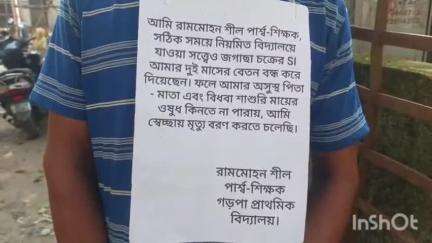 আমি রামমোহন শীল পার্শ্ব-শিক্ষক,
সঠিক সময়ে নিয়মিত বিদ্যালয়ে
যাওয়া সত্ত্বেও জগাছা চক্রের SI
আমার দুই মাসের বেতন বন্ধ করে
দিয়েছেন। ফলে আমার অসুস্থ পিতা
- মাতা এবং বিধবা শাশুরি মায়ের
ওষুধ কিনতে না পারায়, আমি
স্বেচ্ছায় মৃত্যু বরণ করতে চলেছি।
রামমোহন শীল
পার্শ্ব-শিক্ষক
গড়পা প্রাথমিক
বিদ্যালয়।
InShOt